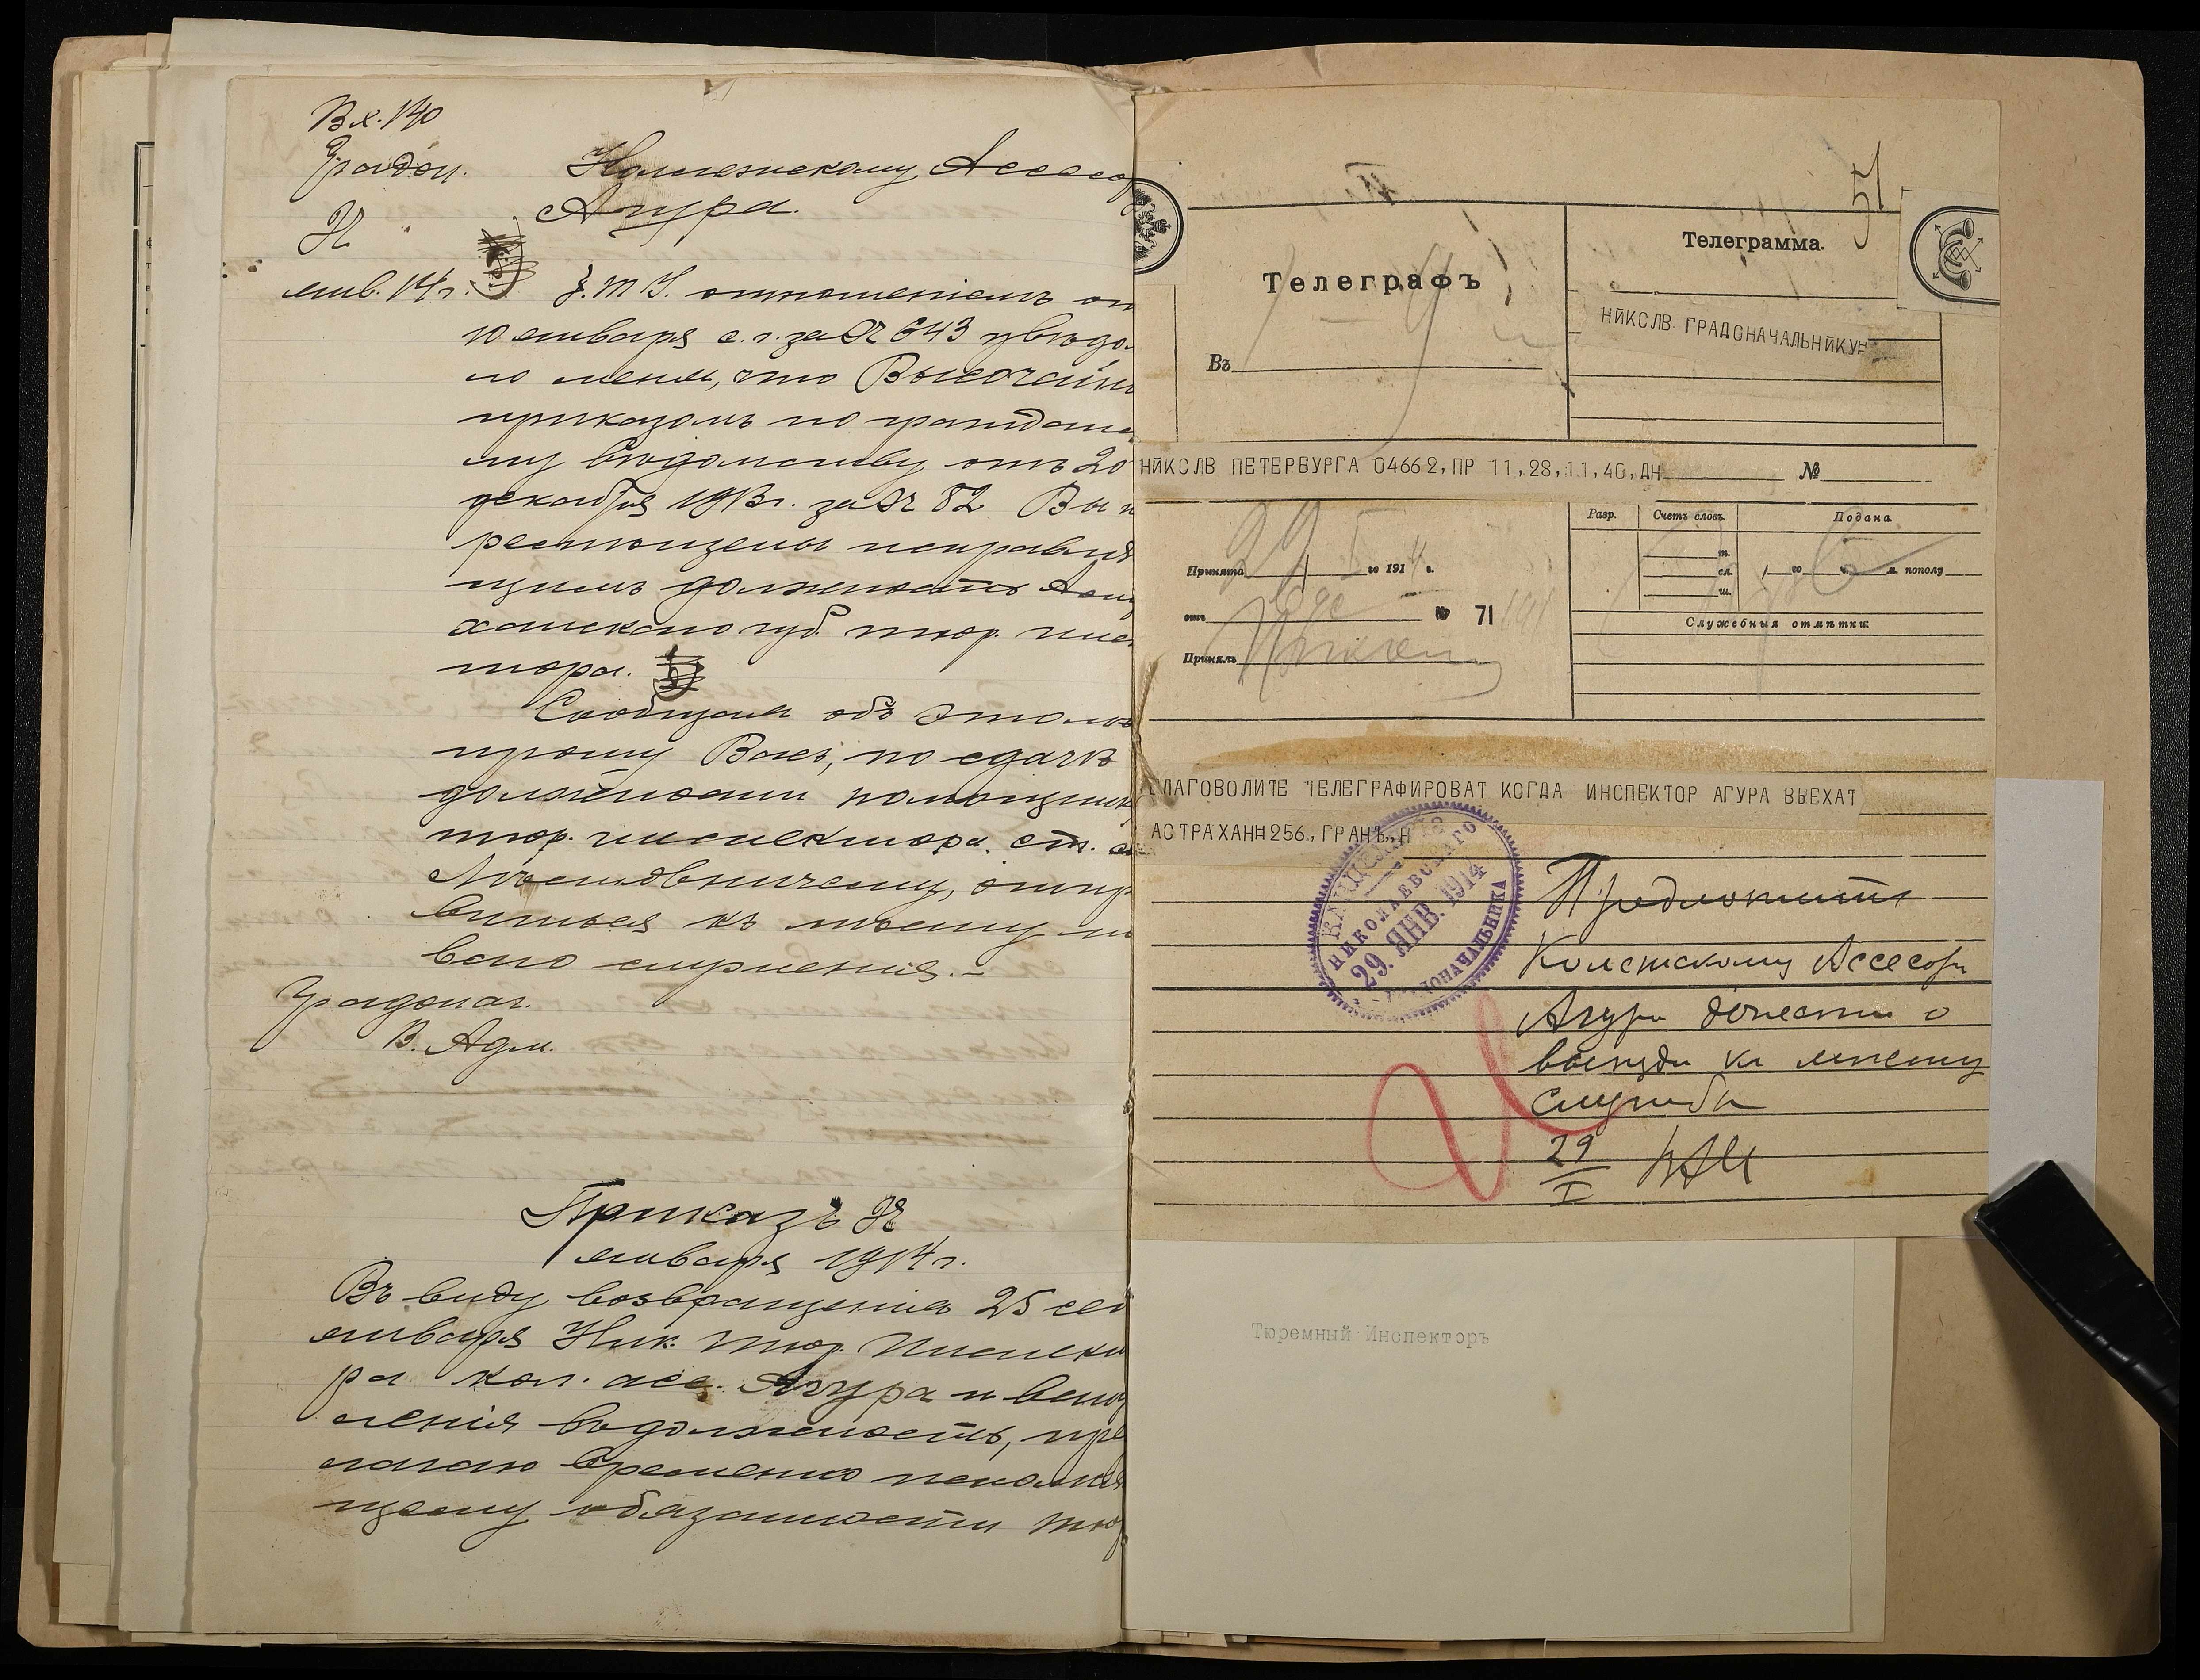 Вх. 140
Градон.
№
янв. 14 г.
Коллежскому Ассесор
Агура.
Г.Т.У. отношеніемъ от
10 января с.г. за № 643 увѣдо
ло меня, что Высочайш
приказомъ по граждан
му вѣдомству отъ 20
декабря 1913 г. за № 82 Вы п
ремѣщены исправля
щимъ должность Аст
ханскаго губ. тюр. инс
тора.
Сообщая объ этомъ
прошу Васъ, по сдачѣ
должности помощник
тюр. инспектора ст. с
отпр
виться къ мѣсту но
ваго служенія.-
Градонач.
В. Адм.
Приказъ №
января 1914 г.
Въ виду возвращенія 25 сег
января Ник. Тюр. Инспекто
ра кол. асс. Агура и всту
пленія въ должность, пред
лагаю временно исполня
щему обязанности тюр
51
Телеграфъ
Въ
Телеграмма.
НЙКСЛВ ГРАДОНАЧАЛЬНЙКУ=
НЙКСЛВ ПЕТЕРБУРГА 04662,ПР 11,28,11,40,ДН
№
Принята 29/I го 1914 г.
отъ № 71
Принялъ
Разр. Счетъ словъ. Подана
т.
сл. го ч. м. пополу
ш.
Служебныя отмѣтки.
ЛАГОВОЛИТЕ ТЕЛЕГРАФИРОВАТ КОГДА ИНСПЕКТОР АГУРА ВЫЕХАТ
АСТРАХАНН256., ГРАНЪ,,Н
КАНЦЕЛЯРІЯ
НИКОЛАЕВСКАГО
29. ЯНВ. 1914
ГРАДОНАЧАЛЬНИКА
Предложить
Колежскому Ассесору
Агура донести о
выѣзде къ мѣсту
службы
29
I
Тюремный Инспекторъ